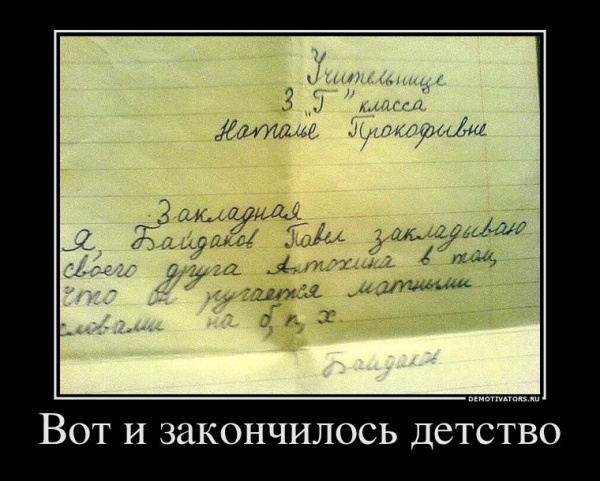 Учительнице
3 "Г" класса
Наталье Прокофивне
Закладная
Я, Байдаков Павел закладываю
своего друга Антохина в том,
что он ругается матными
словами на б, п, х.
Байдаков
DEMOTIVATORS.RU
Вот и закончилось детство